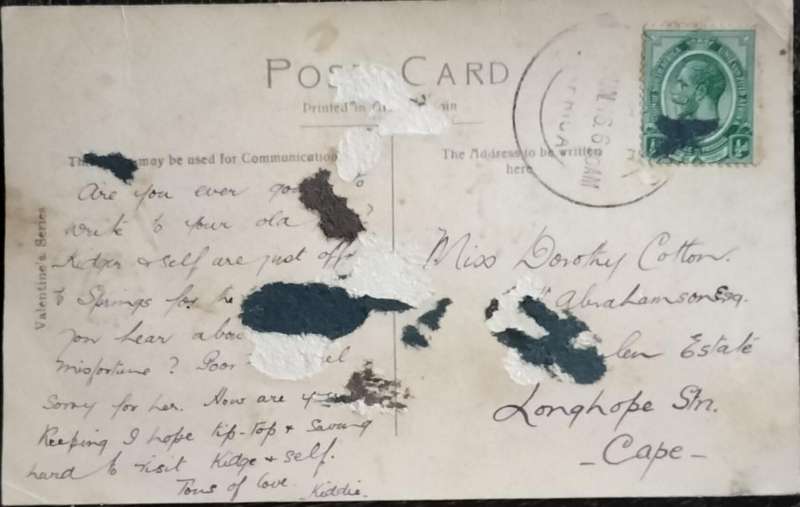 POST CARD
Printed in
may be used for Communication
The Address to be written
here
Valentine's Series
Are you ever
write to your old ?
Kidger & self are just off
to Springs for
you hear
misfortune ? Poor
sorry for her. How are
Keeping I hope tip-top & saving
hard to visit Kidge & self.
Tons of love. Kiddie.
Miss Dorothy Cotton.
Abrahamson Esq.
Estate
Longhope Stn.
- Cape -